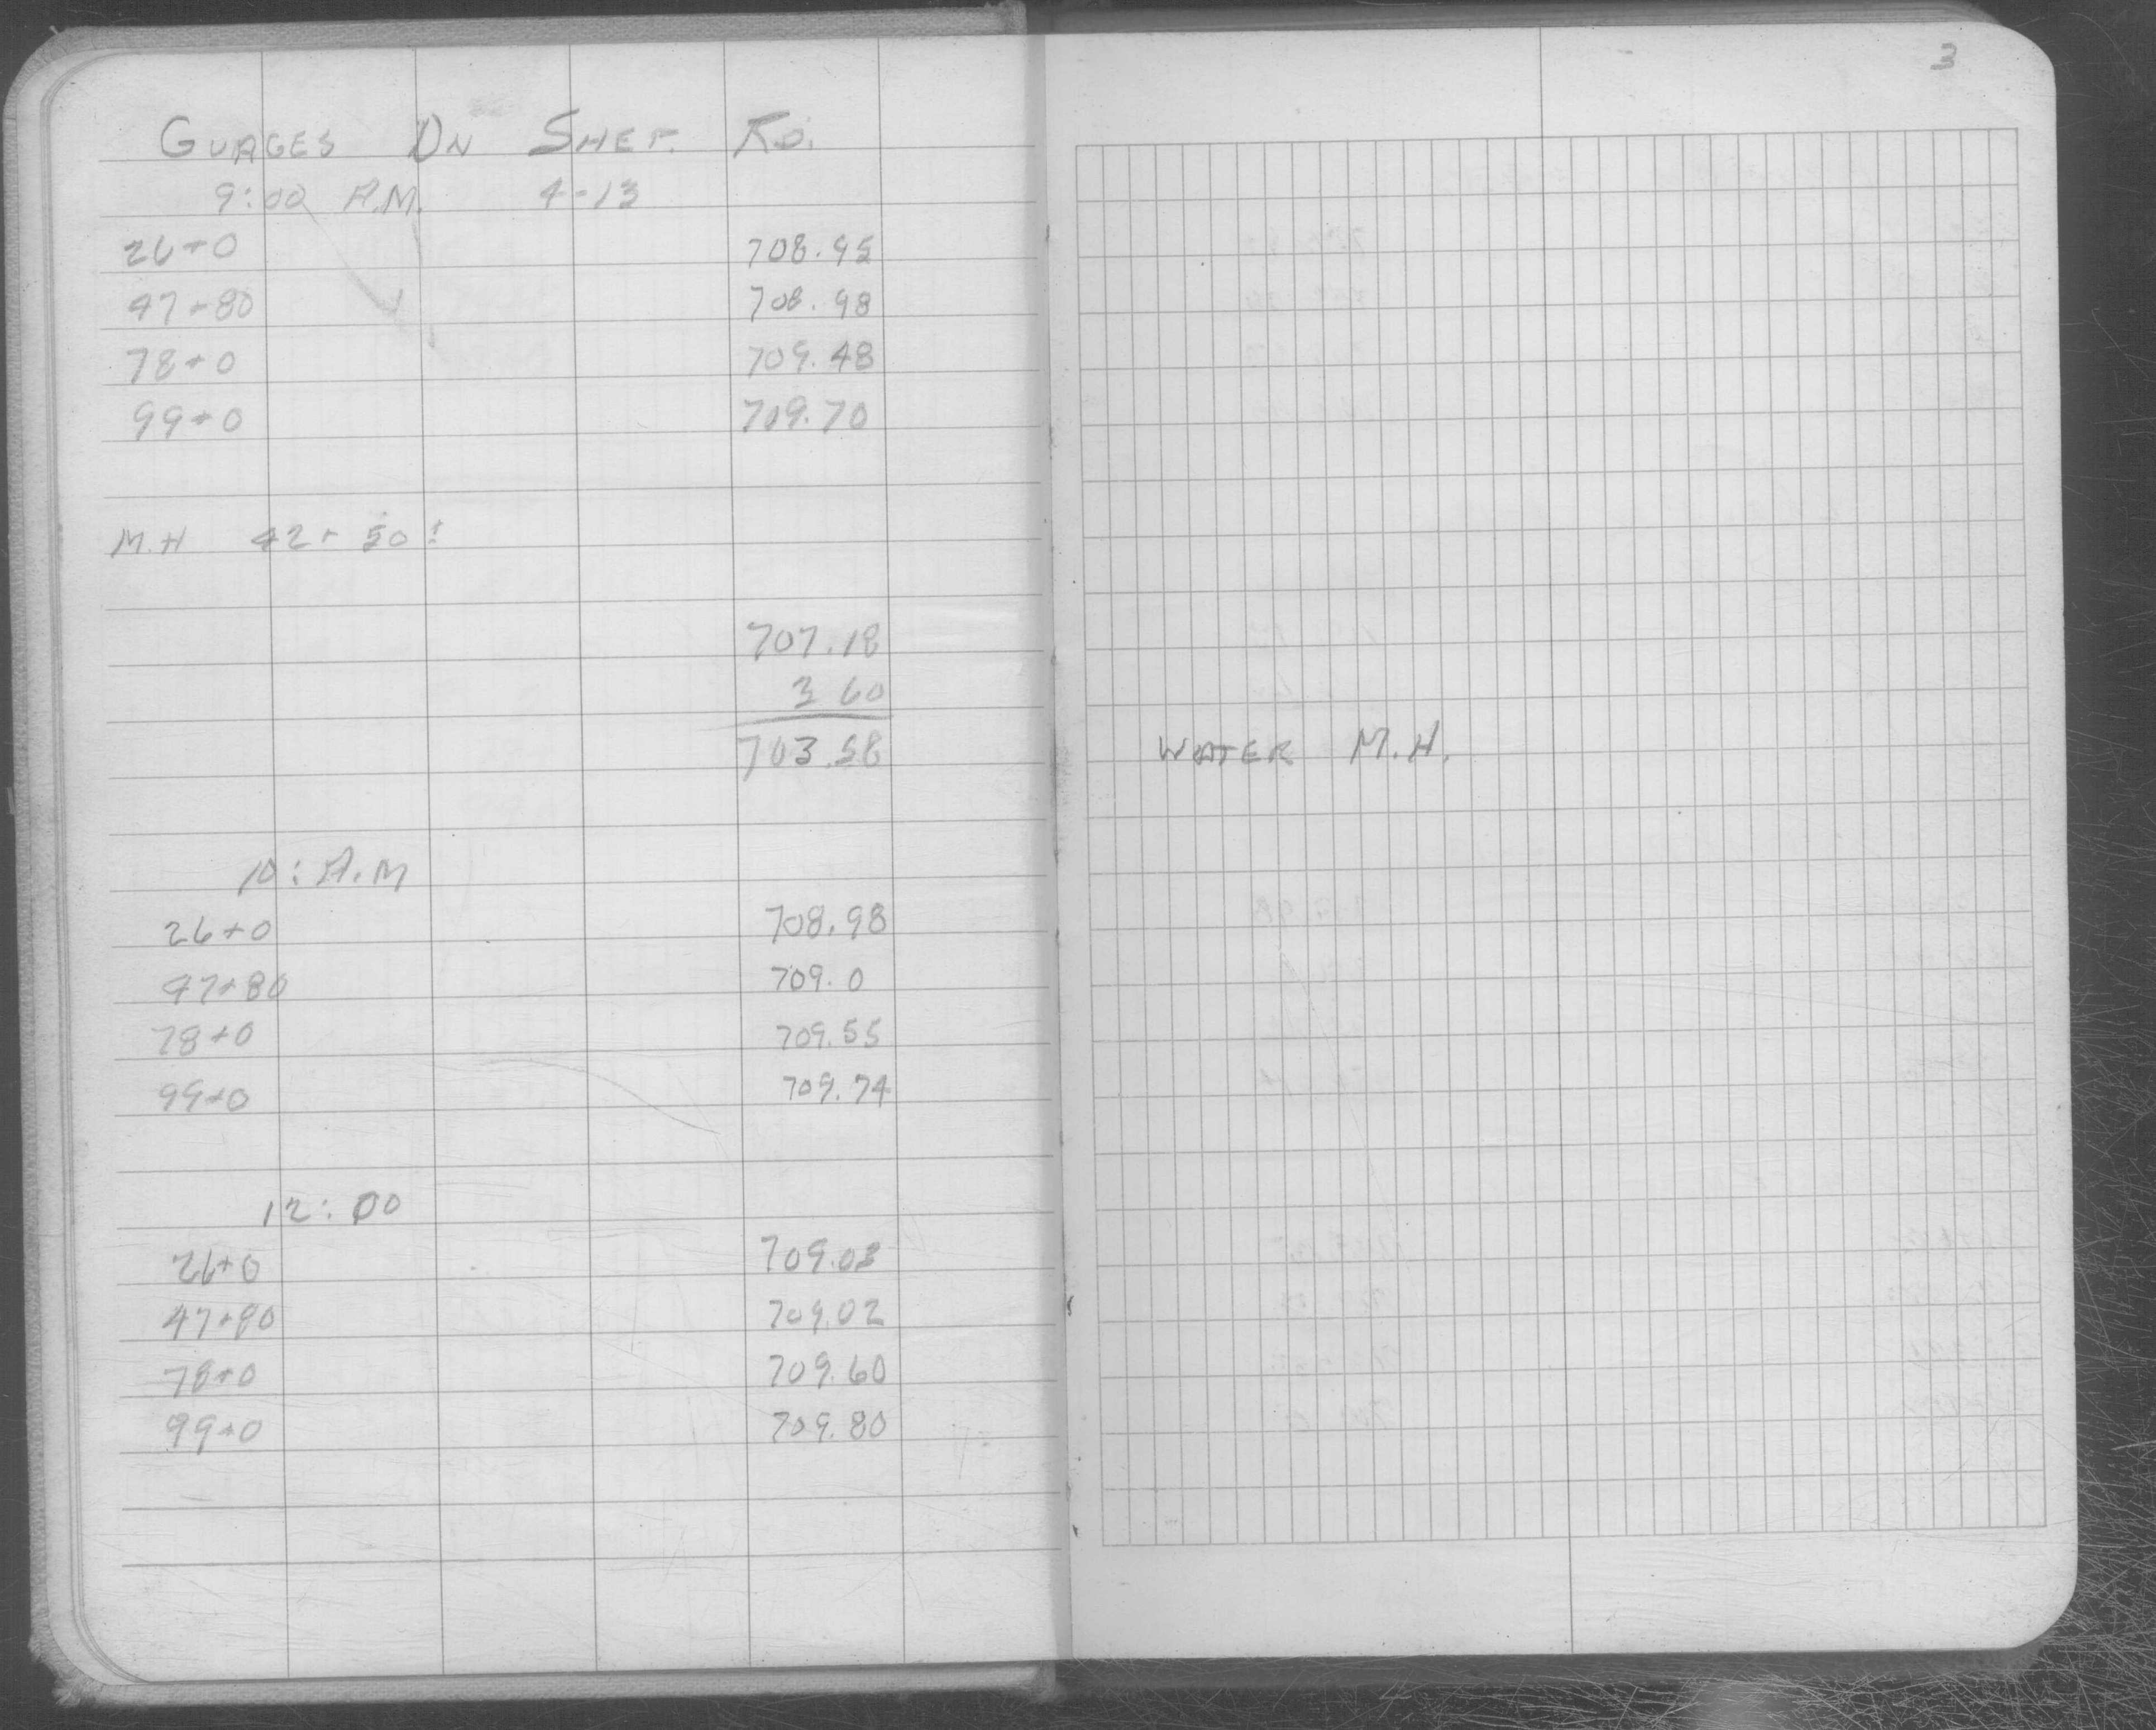 3
GUAGES ON SHEF. RD.
9:00 A.M. 4-13
26+0 708.95
47+80 708.98
78+0 709.48
99+0 709.70
M.H 42+50±
707.18
3 60
703.58 WATER M.H.
10: A.M
26+0 708.98
47+80 709.0
78+0 709.55
99+0 709.74
12:00
26+0 709.03
47+80 709.02
78+0 709.60
99+0 709.80